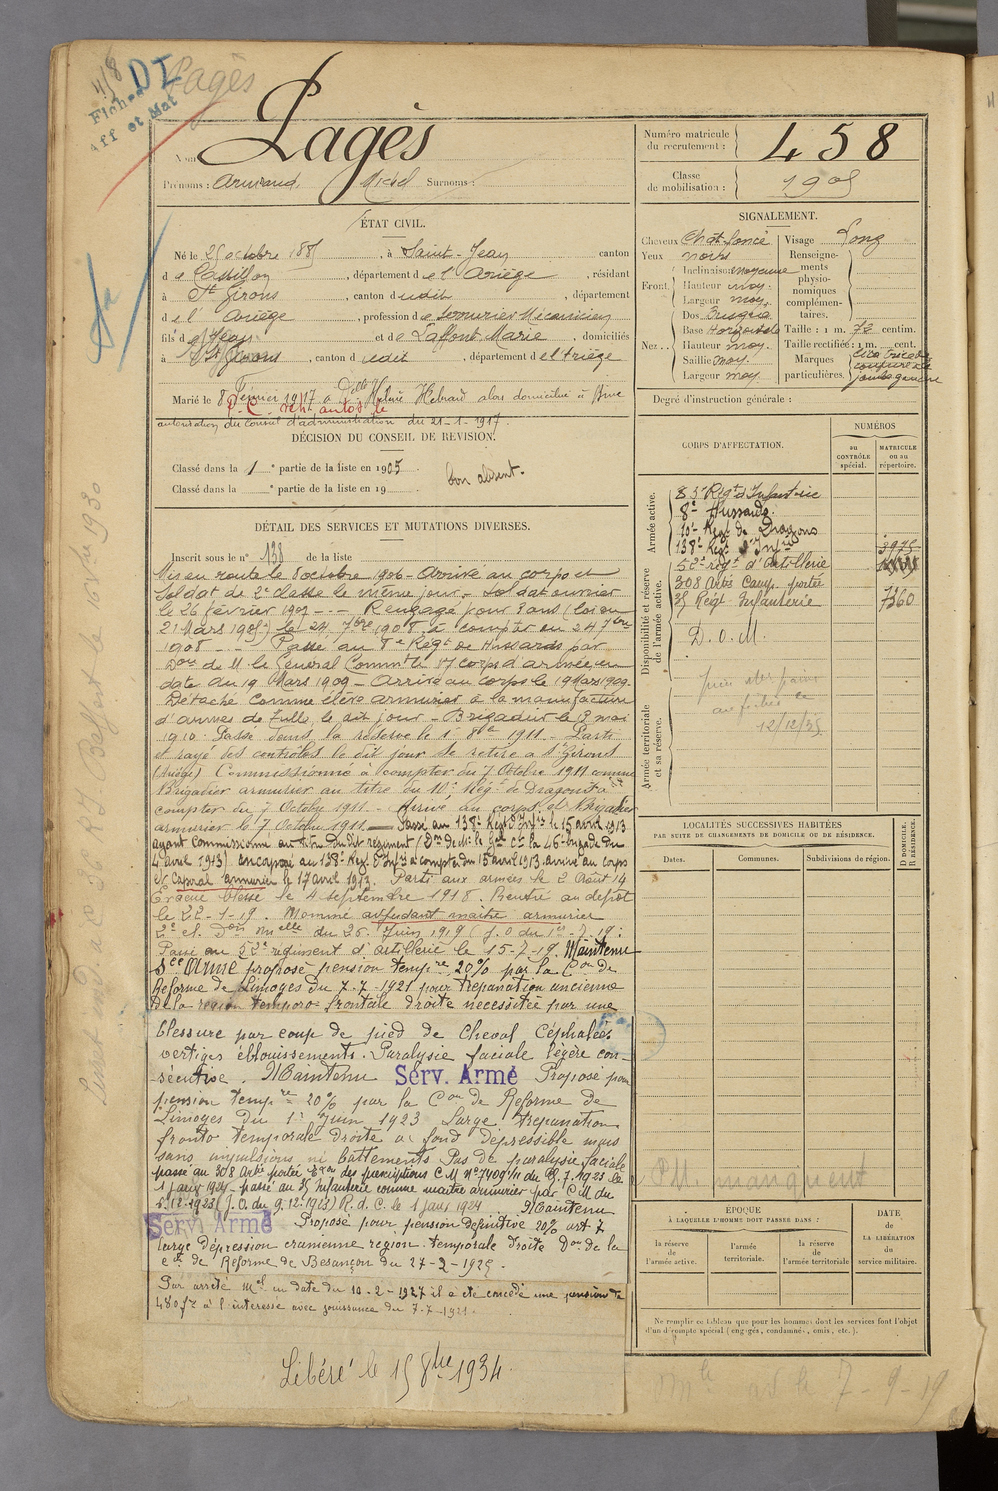 4/8
DI
Pagès
Fiches
Aff et Mat
Pagès
Nom
Prénoms : Armand, Surnoms :
Numéro matricule du recrutement : 458
Classe de mobilisation : 1905
ÉTAT CIVIL.
Né le 25 octobre 1885, à Saint-Jean canton
de Castillon, département de l'Ariège, résidant
à St Girons, canton dudit, département
de l' Ariège, profession de serrurier Mécanicien
fils de Jean et de Laffont Marie, domiciliés
à St Girons, canton dudit, département de l'Ariège
Marié le 8 Février 1917 à Delle Hebrard alors domiciliée à Brive
autorisation du conseil d'administration du 21-1-1917.
DÉCISION DU CONSEIL DE RÉVISION.
Classé dans la 1e partie de la liste en 1905.
Bon absent.
Classé dans la e partie de la liste en 19
DÉTAIL DES SERVICES ET MUTATIONS DIVERSES.
Inscrit sous le n° 138 de la liste
Mis en route le 8 octobre 1906 - Arrivé au corps et
Soldat de 2e classe le même jour - Soldat ouvrier
le 26 février 1907 - - - Rengagé pour 3 ans (loi du
21 Mars 1905) le 24 7bre 1908, à compter du 24 7bre
1908 - - Passé au 8e Régt de Hussards par
Don de M. le Général Commt le 17 corps d'armée en
date du 19 Mars 1909 - Arrivé au corps le 19 Mars 1909.
Détaché comme élève armurier à la manufacture
d'armes de Tulle, le dit jour - Brigadier le 9 mai
1910. Passé dans la réserve le 1er 8bre 1911. Parti
et rayé des contrôles le dit jour se retire à St Girons
(Ariège) Commissionné à compter du 7 Octobre 1911 comme
Brigadier armurier au titre du 10e Régt de Dragons à
compter du 7 Octobre 1911. - Arrivé au corps et Brigadier
armurier le 7 Octobre 1911. - Passé au 138e Régt d'Infie le 15 avril 1913
ayant commissionné au titre du dit régiment (Don de M. le Gal Ct la 46e brigade du
4 avril 1913) incorporé au 138e Régt d'Infie à compter du 15 avril 1913. arrivé au corps
et Caporal armurier le 17 avril 1913. Parti aux armées le 2 Août 14
Evacué blessé le 4 septembre 1918. Rentré au dépôt
le 22-1-19. Nommé adjudant maître armurier
2e cl. Don Mlle du 26 Juin 1919 (J.O du 1er-7-19.
Passé au 52e régiment d'artillerie le 15-7-19. Maintenu
Sce Armé proposé pension tempre 20% par la Con de
Réforme de Limoges du 7-7-1921 pour trépanation ancienne
de la région temporo-frontale droite nécessitée par une
blessure par coup de pied de Cheval Céphalées
vertiges éblouissements. Paralysie faciale légère con-
-sécutive. Maintenu Serv. Armé Proposé pour
pension tempre 20% par la Con de Réforme de
Limoges du 1er Juin 1923 Large trépanation
fronto temporale droite à fond dépressible mais
sans impulsions ni battements Pas de paralysie faciale
passé au 308 Artie portée Exon des prescriptions C M N° 7409 1/11 du 25.7.1923 le
1 Janv 1924 - passé au 35 Infanterie comme maître armurier par C M du
5.12.1923 (J.O. du 9.12.1923) R.d.C. le 1 Janv 1924 Maintenu
Serv. Armé Proposé pour pension définitive 20% art 7
large dépression cranienne région temporale droite Don de la
Con de Réforme de Besançon du 27-2-1925.
Par arrêté Mel en date du 10-2-1927 il a été concédé une pension de
480 fr à l'intéressé avec jouissance du 7-7-1921.
Libéré le 15 8bre 1934.
SIGNALEMENT.
Cheveux Chât. foncé
Yeux noirs
Front. Inclinaison moyenne
Hauteur moy.
Largeur moy.
Nez.. Dos Busqué
Base Horizontale
Hauteur moy.
Saillie moy.
Largeur moy.
Visage long
Renseignements physionomiques complémentaires.
Taille : 1 m. 72 centim.
Taille rectifiée : 1 m. cent.
Marques particulières. Cicatrice de coupure à la jambe gauche
Degré d'instruction générale :
CORPS D'AFFECTATION.
NUMÉROS
au CONTRÔLE spécial.
MATRICULE ou au répertoire.
Armée active.
83e Régt d'Infanterie
8e Hussards.
10e Régt de Dragons
138e Régt d'Infie 3975
Disponibilité et réserve de l'armée active.
52e régt d'Artillerie
308 Artie Camp. portée
35 Régt Infanterie 7360
D.O.M.
12/12/35
Armée territoriale et sa réserve.
LOCALITÉS SUCCESSIVES HABITÉES
PAR SUITE DE CHANGEMENTS DE DOMICILE OU DE RÉSIDENCE.
Dates. Communes. Subdivisions de région.
D DOMICILE.
R RÉSIDENCE.
manquent
ÉPOQUE
À LAQUELLE L'HOMME DOIT PASSER DANS :
la réserve de l'armée active.
l'armée territoriale.
la réserve de l'armée territoriale
DATE de LA LIBÉRATION du service militaire.
Ne remplir ce tableau que pour les hommes dont les services font l'objet
d'un décompte spécial (engagés, condamnés, omis, etc.).
7-9-19